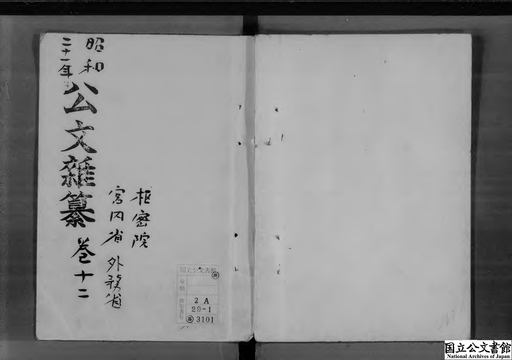 昭和
二十一年
公文雑纂 巻十二
枢密院
宮内省 外務省
2A
29-1
3101
国立公文書館
National Archives of Japan